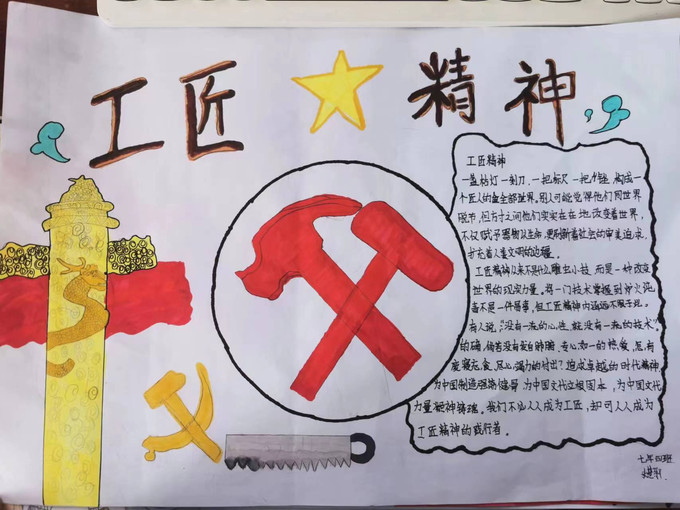 工匠 精神
工匠精神
一盏枯灯一刻刀,一把标尺一把锉,构成一
个匠人的全部世界,别人可能觉得他们同世界
脱节,但方寸之间他们实实在在地改变着世界,
不仅赋予器物以生命,更刷新着社会的审美追求,
扩充着人类文明的边疆。
工匠精神从来不是什么雕虫小技,而是一种改变
世界的现实力量。将一门技术掌握到炉火纯
并不是一件易事,但工匠精神内涵远不限于此。
有人说:"没有一流的心性,就没有一流的技术"。
的确,倘若没有发自肺腑、专心如一的热爱,怎有
废寝忘食、尽心竭力的付出?
造卓越的时代精神
为中国制造强筋健骨,为中国文化立根固本,为中国
力量凝神铸魂。我们不必人人成为工匠,却可人人成为
工匠精神的践行者。
七年四班